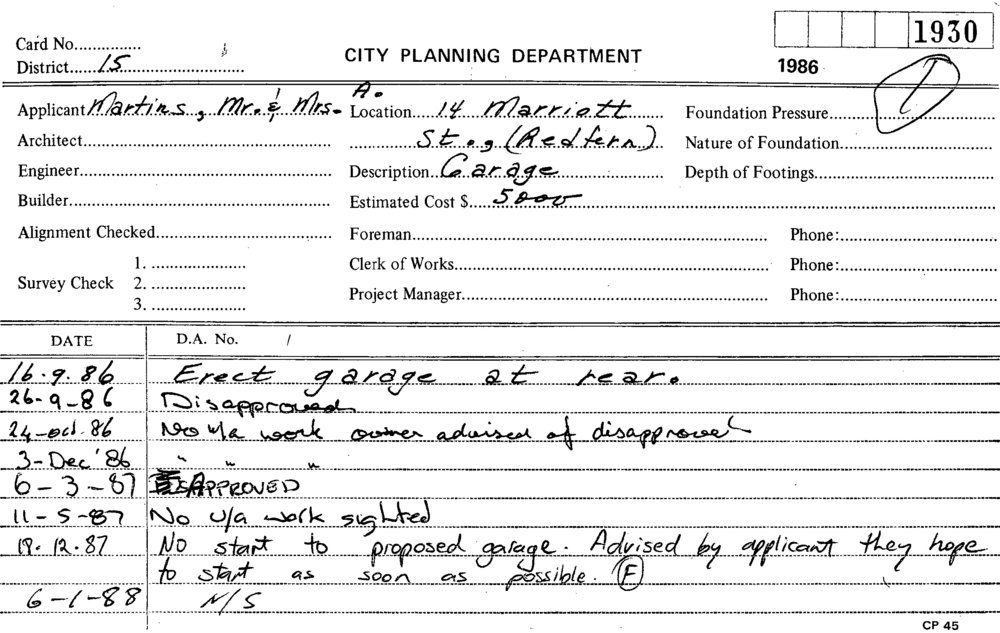 1930
Card No.
District 15
CITY PLANNING DEPARTMENT
1986
Applicant Martins, Mr. & Mrs. A.
Location 14 Marriott
Foundation Pressure
Architect
St., (Redfern)
Nature of Foundation
Engineer
Description Garage
Depth of Footings
Builder
Estimated Cost $ 5000
Alignment Checked
Foreman
Phone:
Survey Check
1.
2.
3.
Clerk of Works
Phone:
Project Manager
Phone:
DATE D.A. No. /
16.9.86 Erect garage at rear.
26-9-86 Disapproved
24-oct.86 No u/a work owner advised of disapproval
3-Dec'86 " " "
6-3-87 APPROVED
11-5-87 No u/a work sighted
12.87 No start to proposed garage. Advised by applicant they hope
to start as soon as possible. F
6-1-88 N/S
CP 45